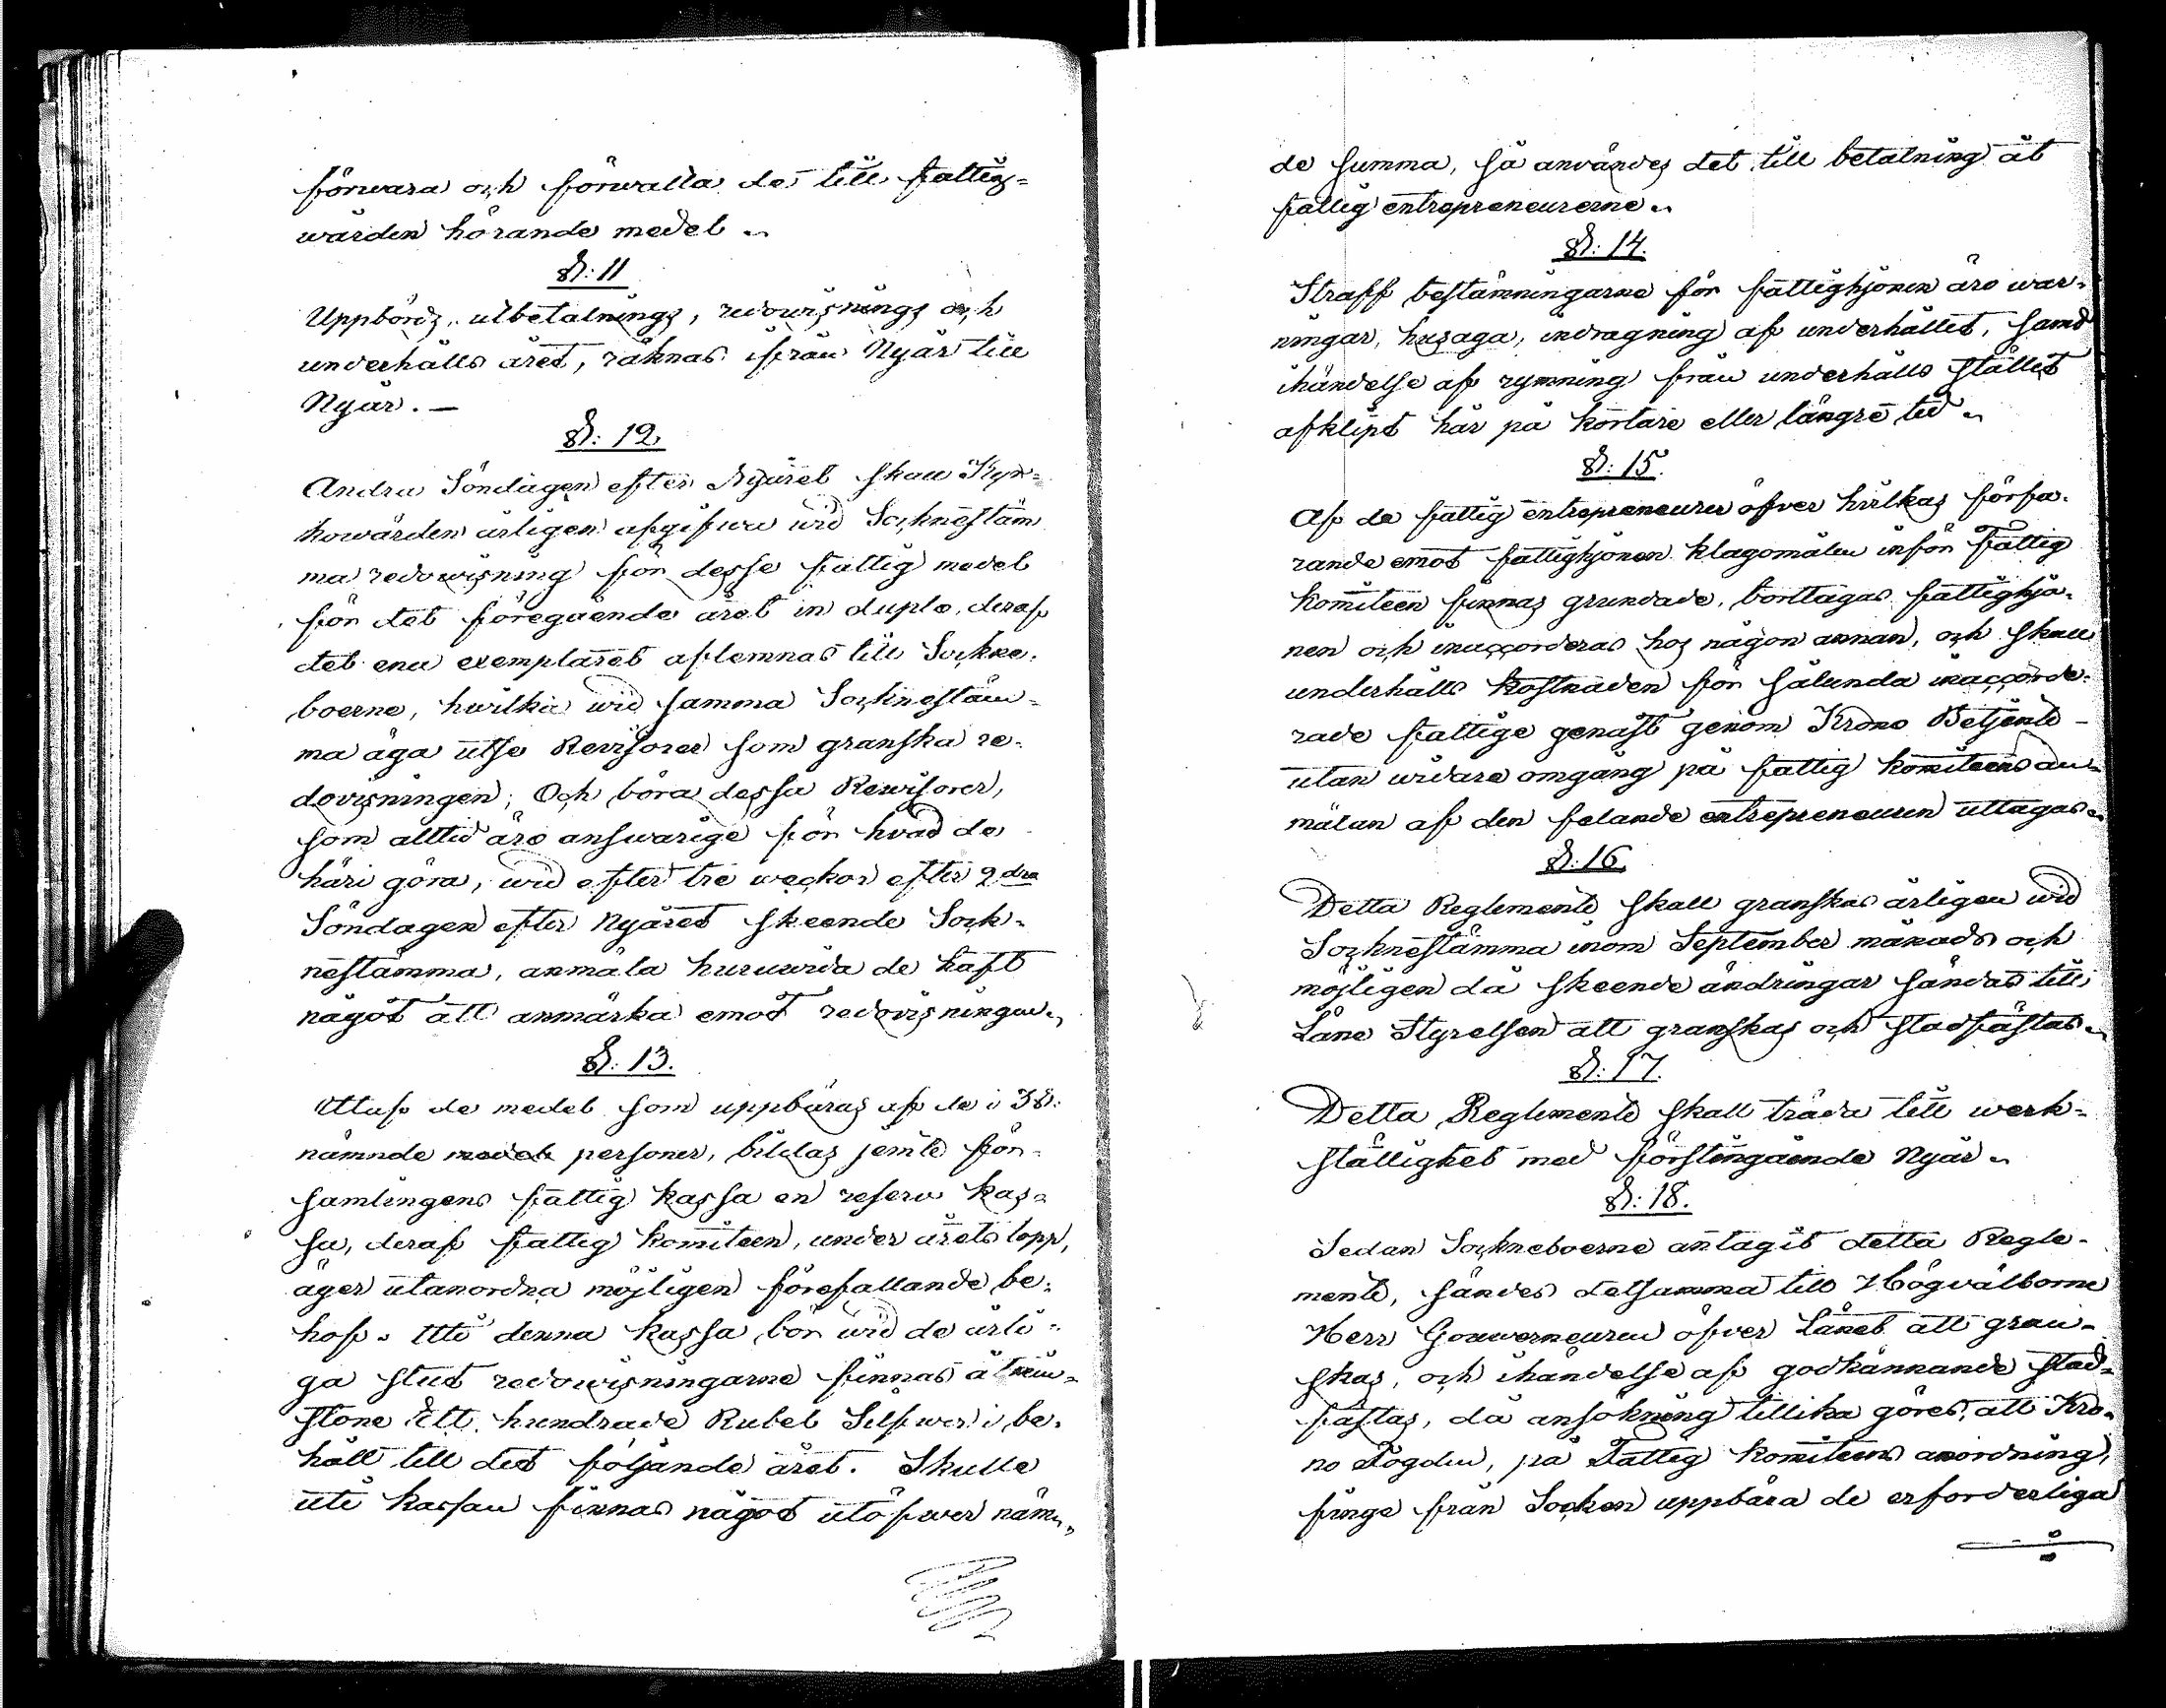 förwara och förwalta de till fattig=
wården hörande medel.
§: 11
Uppbörds, utbetalnings, redowisnings och
underhålls året, räknas ifrån Nyår till
Nyår. —
§: 12.
Andra Söndagen efter Nyåret skall Kyr=
kowärden årligen afgifwa wid Sockneståm
ma redowisning för desse fattig medel
för det föregående året in duplo, deraf
det ena exemplaret aflemnas till Sockne=
boerne, hwilka wid samma Socknestäm=
ma äga utse Revisorer som granska re=
dovisningen; Och böra dessa Rewisorer,
som alltid äro answarige för hvad de
häri göra, wid efter tre weckor efter 2dra
Söndagen efter Nyåret skeende Sock=
nestämma, anmäla huruwida de haft
något att anmärka emot redovisningen.
§: 13.
Utaf de medel som uppbäras af de i 3§:
nämnde medel personer, bildas jemte för=
samlingens fattig kassa en reserv kas=
sa, deraf fattig komiteen, under årets lopp,
äger utanordna möjligen förefallande be=
hof. Uti denna kassa bör wid de årli=
ga slut redowisningarne finnas åtmin=
stone Ett hundrade Rubel Silfwer i be=
håll till det följande året. Skulle
uti kassan finnas något utöfwer näm=
de summa, så användes det till betalning åt
fattig entrepreneurerne.
§: 14.
Straff bestämningarne för fattighjonen äro war=
ningar, husaga, indragning af underhållet, samt
ihändelse af rymning från underhålls stället
afklipt hår på kortare eller längre tid.
§: 15.
Af de fattig entrepreneurer öfver hvilkas förfa=
rande emot fattighjonen klagomålen inför Fattig
komiteen finnas grundade, borttagas fattighjo=
nen och inaccorderas hos någon annan, och skall
underhålls kostnaden för sålunda inaccorde=
rade fattige genast genom Krono Betjente
utan widare omgång på fattig komiteens an=
mälan af den felande entrepreneuren uttagas.
§: 16.
Detta Reglemente skall granskas årligen wid
Socknestämma inom September månads och
möjligen då skeende ändringar sändas till
Läne Styrelsen att granskas och stadfästas.
§: 17.
Detta Reglemente skall träda till werk=
ställighet med förstingående Nyår.
§: 18.
Sedan Sockneboerne antagit detta Regle=
mente, sändes detsamma till Högvälborne
Herr Gouverneuren öfver Länet att gran=
skas, och ihändelse af godkännande stad=
fästas, då ansökning tillika göres, att Kro=
no Fogden, på Fattig komiteens anordning,
finge från Socken uppbära de erforderliga